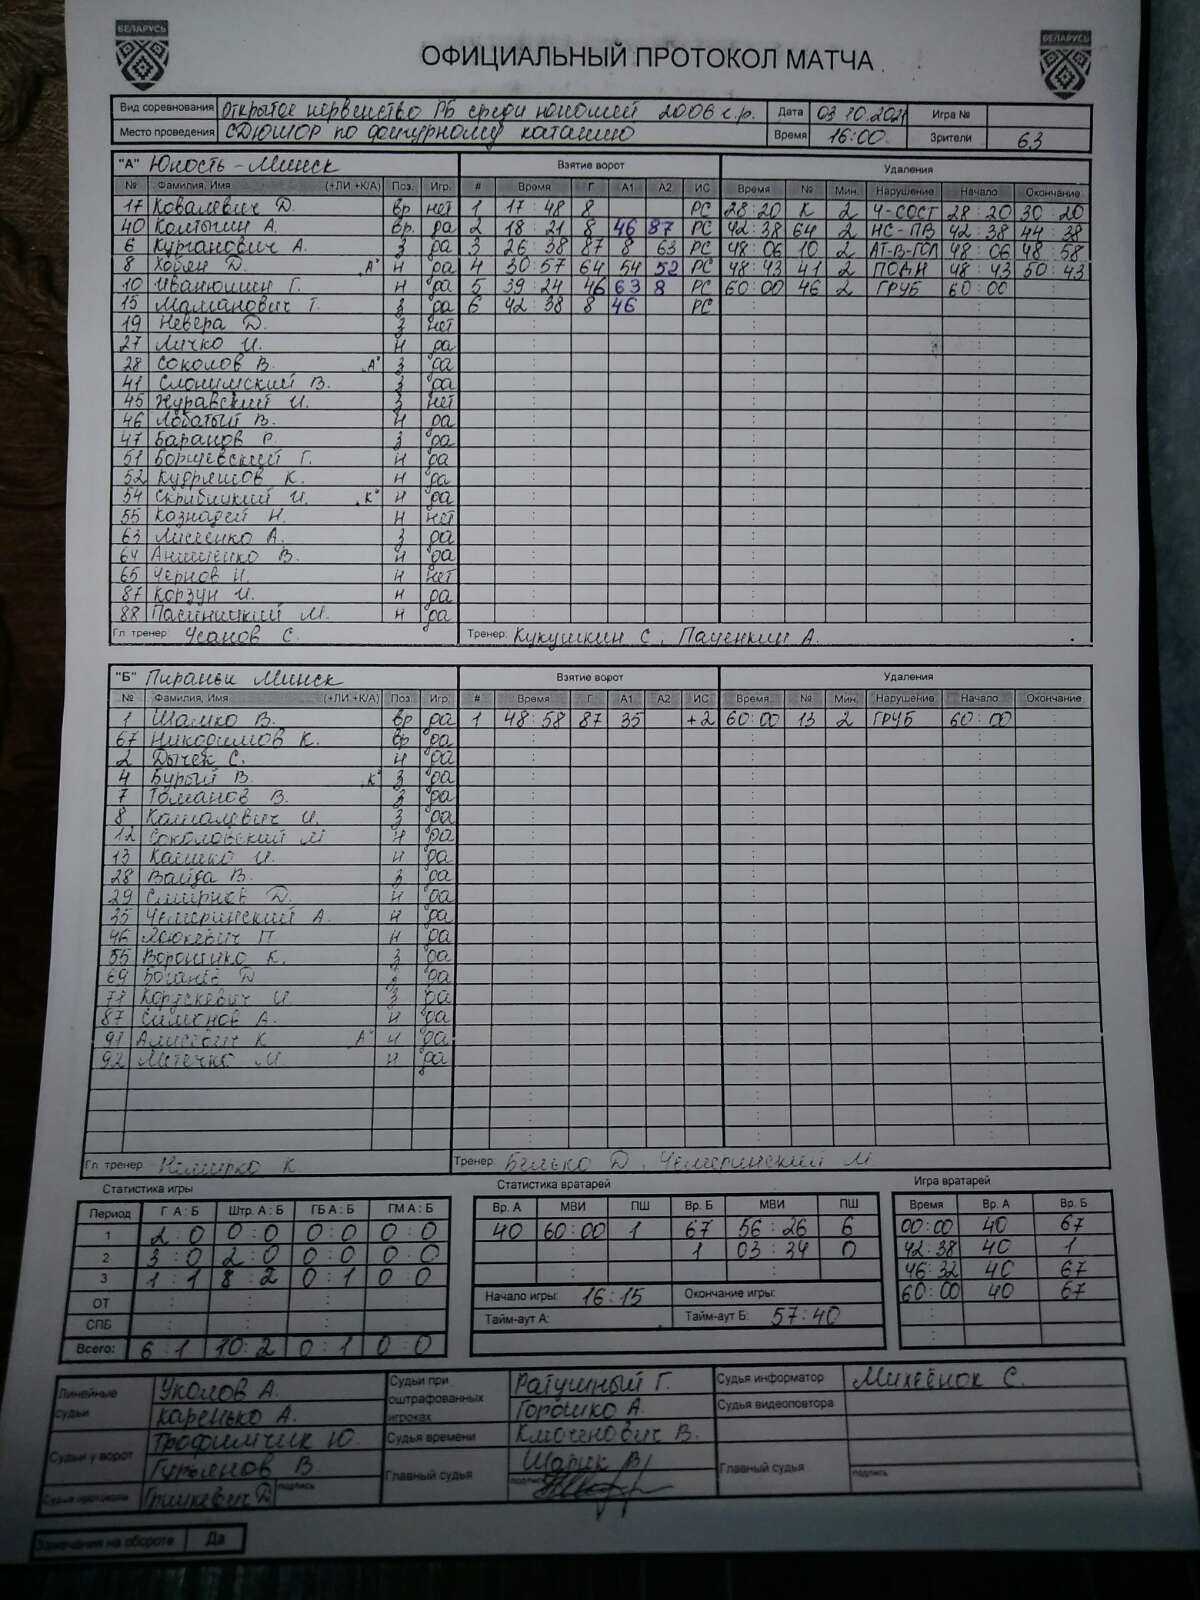 БЕЛАРУСЬ БЕЛАРУСЬ
ОФИЦИАЛЬНЫЙ ПРОТОКОЛ МАТЧА
Вид соревнования Открытое первенство РБ среди юношей 2006 г.р. Дата 03.10.2021 Игра №
Место проведения СДЮШОР по фигурному катанию Время 16:00 Зрители 63
"А" Юность - Минск Взятие ворот Удаления
№ Фамилия, Имя (+ЛИ +К/А) Поз. Игр. # Время Г А1 А2 ИС Время № Мин. Нарушение Начало Окончание
17 Ковалевич Д. вр нет 1 17:48 8 РС 28:20 К 2 Ч-СОСТ 28:20 30:20
40 Колтыгин А. вр. да 2 18:21 8 46 87 РС 42:38 64 2 НС-ПВ 42:38 44:38
6 Курганович А. з да 3 26:38 87 8 63 РС 48:06 10 2 АТ-В-ГОЛ 48:06 48:58
8 Хован Д. "А" н да 4 30:57 64 54 52 РС 48:43 41 2 ПОДН 48:43 50:43
10 Иванюшин Г. н да 5 39:24 46 63 8 РС 60:00 46 2 ГРУБ 60:00
15 Шаманович Т. з да 6 42:38 8 46 РС
19 Невера Д. з нет
27 Личко И. н да
28 Соколов В. "А" з да
41 Слонимский В. з да
45 Журавский И. з нет
46 Лобатый В. н да
47 Баранов Р. з да
51 Борщевский Г. н да
52 Кудряшов К. н да
54 Скрибицкий И. "К" н да
55 Козналей Н. н нет
63 Лисеенко А. з да
64 Анищенко В. н да
65 Чернов И. н нет
87 Корзун И. н да
88 Пасиницкий М. н да
Гл. тренер: Усанов С. Тренер: Кукушкин С., Паценкин А.
"Б" Пираньи Минск Взятие ворот Удаления
№ Фамилия, Имя (+ЛИ +К/А) Поз. Игр. # Время Г А1 А2 ИС Время № Мин. Нарушение Начало Окончание
1 Шамко В. вр да 1 48:58 87 35 +2 60:00 13 2 ГРУБ 60:00
67 Никодимов К. вр да
2 Дычек С. н да
4 Бурый В. "К" з да
7 Томанов В. з да
8 Камалевич И. з да
12 Соколовский М н да
13 Кашко И. н да
28 Вайда В. з да
29 Смирнов Д. н да
35 Чемеринский А. н да
46 П н да
55 Ворошко К. з да
69 Д з да
71 И з да
87 Симонов А. н да
91 К А" н да
92 М. н да
Гл. тренер К. Тренер: Белько Д. Чемеринский М
Статистика игры Статистика вратарей Игра вратарей
Период Г А : Б Штр. А : Б ГБ А : Б ГМ А : Б Вр. А МВИ ПШ Вр. Б МВИ ПШ Время Вр. А Вр. Б
1 2:0 0:0 0:0 0:0 40 60:00 1 67 56:26 6 00:00 40 67
2 3:0 2:0 0:0 0:0 1 03:34 0 42:38 40 1
3 1:1 8:2 0:1 0:0 46:32 40 67
ОТ Начало игры: 16:15 Окончание игры: 60:00 40 67
СПБ Тайм-аут А: Тайм-аут Б: 57:40
Всего: 6:1 10:2 0:1 0:0
Линейные судьи Уколов А. Судьи при оштрафованных игроках Ратушный Г. Судья информатор Михеёнок С.
Каренько А. Горошко А. Судья видеоповтора
Судьи у ворот Трофимчик Ю. Судья времени Климченович В.
Гурьянов В Главный судья Шарик В. Главный судья
Судья протокола Гришкевич Д подпись подпись подпись
Замечания на обороте Да